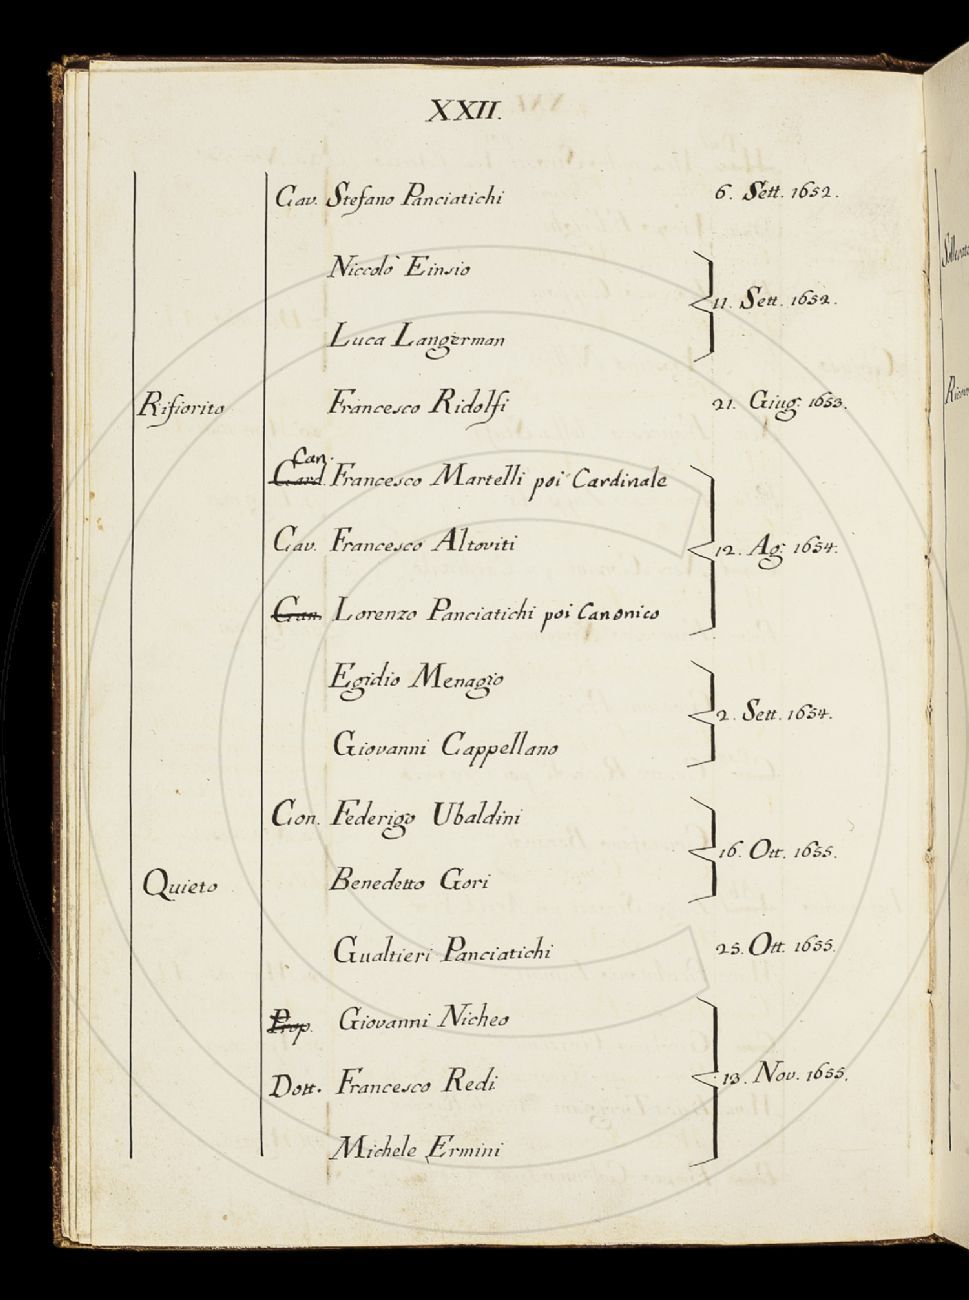 XXII.
Cav. Stefano Panciatichi 6. Sett. 1652.
Niccolò Einsio
11. Sett. 1652.
Luca Langerman
Rifiorito Francesco Ridolfi 21. Giug. 1653.
Can.
Card. Francesco Martelli poi Cardinale
Cav. Francesco Altoviti 12. Ag. 1654.
Can. Lorenzo Panciatichi poi Canonico
Egidio Menagio
2. Sett. 1654.
Giovanni Cappellano
Con. Federigo Ubaldini
16. Ott. 1655.
Quieto Benedetto Gori
Gualtieri Panciatichi 25. Ott. 1655.
Prop. Giovanni Nicheo
Dott. Francesco Redi 13. Nov. 1655.
Michele Ermini